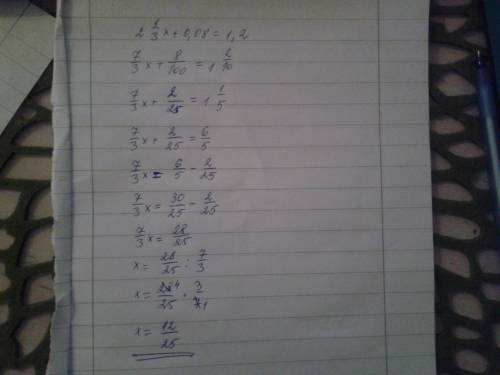 2 1/3 x + 0,08 = 1,2
7/3 x + 8/100 = 1 2/10
7/3 x + 2/25 = 1 1/5
7/3 x + 2/25 = 6/5
7/3 x = 6/5 - 2/25
7/3 x = 30/25 - 2/25
7/3 x = 28/25
x = 28/25 : 7/3
x = 28 4/25 · 3/7 1
x = 12/25